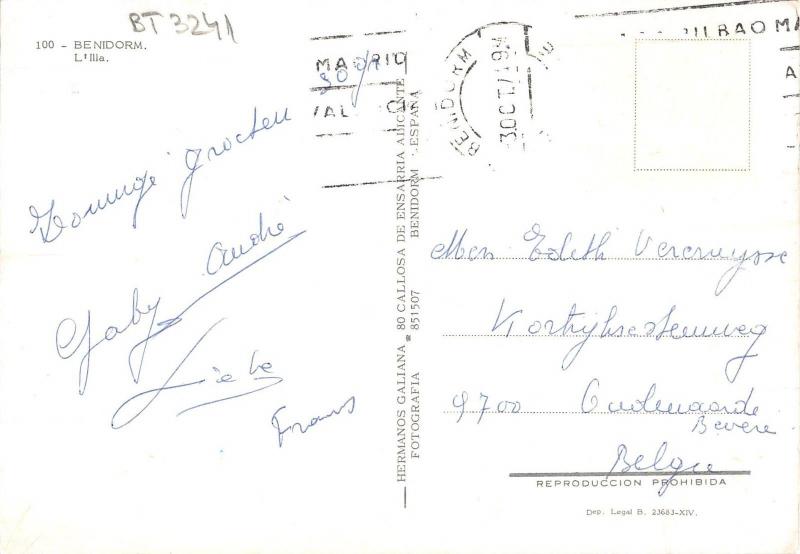 BT 3241
100 - BENIDORM.
L'Illa.
MADRID
VAL
BENIDORM
30 OCT.71 9M
BILBAO MA
A
Zonnige groeten
Gaby André
Liebe
Frans
HERMANOS GALIANA * 80 CALLOSA DE ENSARRIA ALICANTE
FOTOGRAFIA * 851507 BENIDORM . ESPAÑA
Men Edith Vercruysse
Kortrijksesteenweg
9700 Oudenaarde
Bevere
Belgie
REPRODUCCION PROHIBIDA
Dep. Legal B. 23683-XIV.